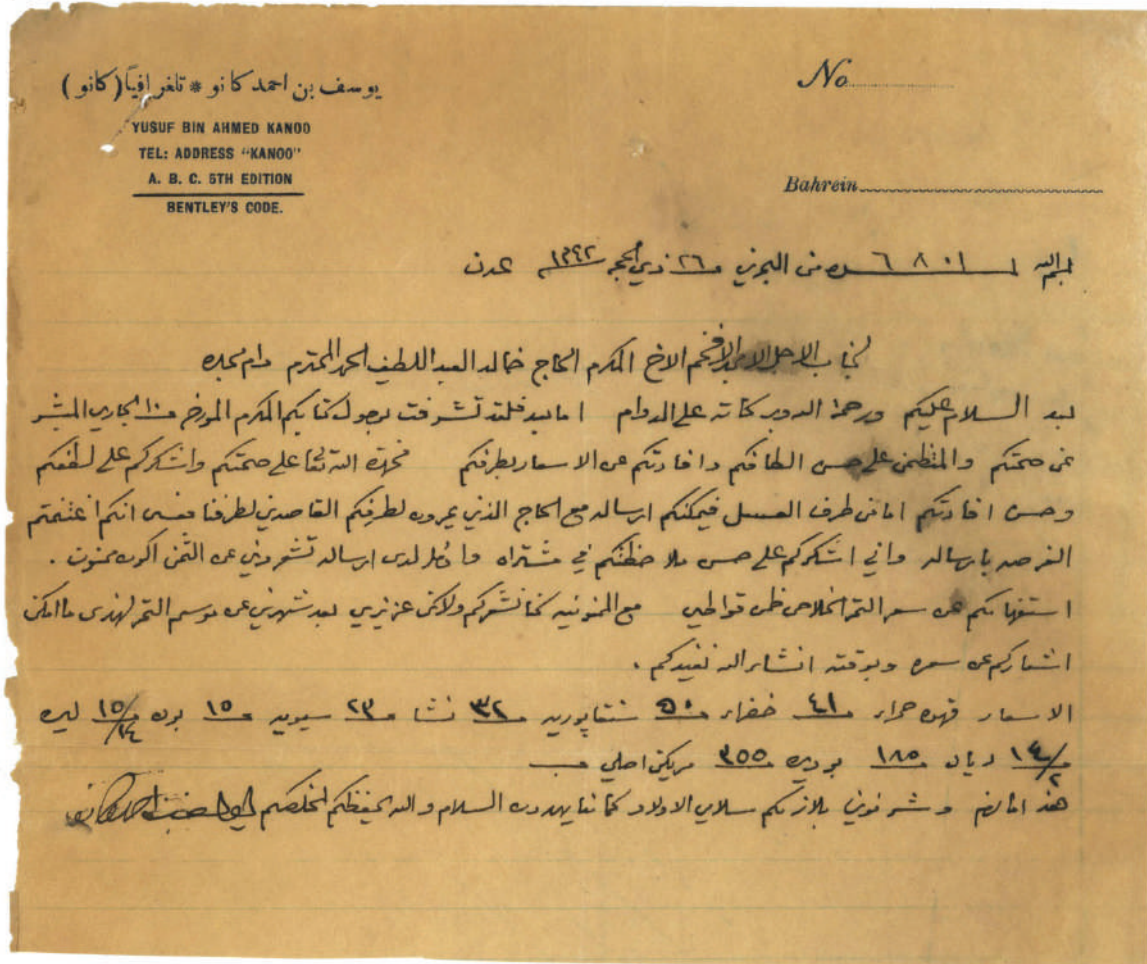 يوسف بن احمد كانو * تلغرافياً (كانو)
YUSUF BIN AHMED KANOO
TEL: ADDRESS "KANOO"
A. B. C. 5TH EDITION
BENTLEY'S CODE.
No
Bahrein
من البحرين ٢٦ ذي الحجه ١٣٤٢ عدن
لجناب الاجل الامجد الافخم الاخ المكرم الحاج خالد العبد اللطيف الحمد المحترم دام مجده
بعد السلام عليكم ورحمة الله وبركاته على الدوام اما بعد فلقد تشرفت بوصول كتابكم المكرم المورخ ١٠ الجاري المبشر
عن صحتكم والمتظمن على حسن الطافكم وافادتكم عن الاسعار بطرفكم فحمدة الله تعا على صحتكم واشكركم على لطفكم
وحسن افادتكم اما من طرف العسل فيمكنكم ارساله مع الحاج الذين يمرون لطرفكم القاصدين لطرفنا فعسى انكم اغتنمتم
الفرصه بارساله واني اشكركم على حسن ملاحظتكم في مشتراه وامل لدى ارساله تشعروني عن الثمن اكون ممنون .
استفهامكم عن سعر التمر الخلاص ظمن قواطي مع الممنونيه كنا نشعركم ولاكن عزيزي بعد شهرين عن موسم التمر لهذى ما امكن
اشعاركم عن سعره وبوقته انشاء الله نفيدكم .
الاسعار قهوه حمراء ٤١ خضراء ٥٠ سنقابوريه ٣٢ نشا ٢٣ سيويه ١٥ بوته ١٥/١٤ ليره
١٤/٢ ريال ١٨٥ بوديره ٣٥٥ مريكن اصلي
هذا مالزم وشرفوني بلازمكم سلامي الاولاد كما منا يهدون السلام والله يحفظكم لمخلصكم